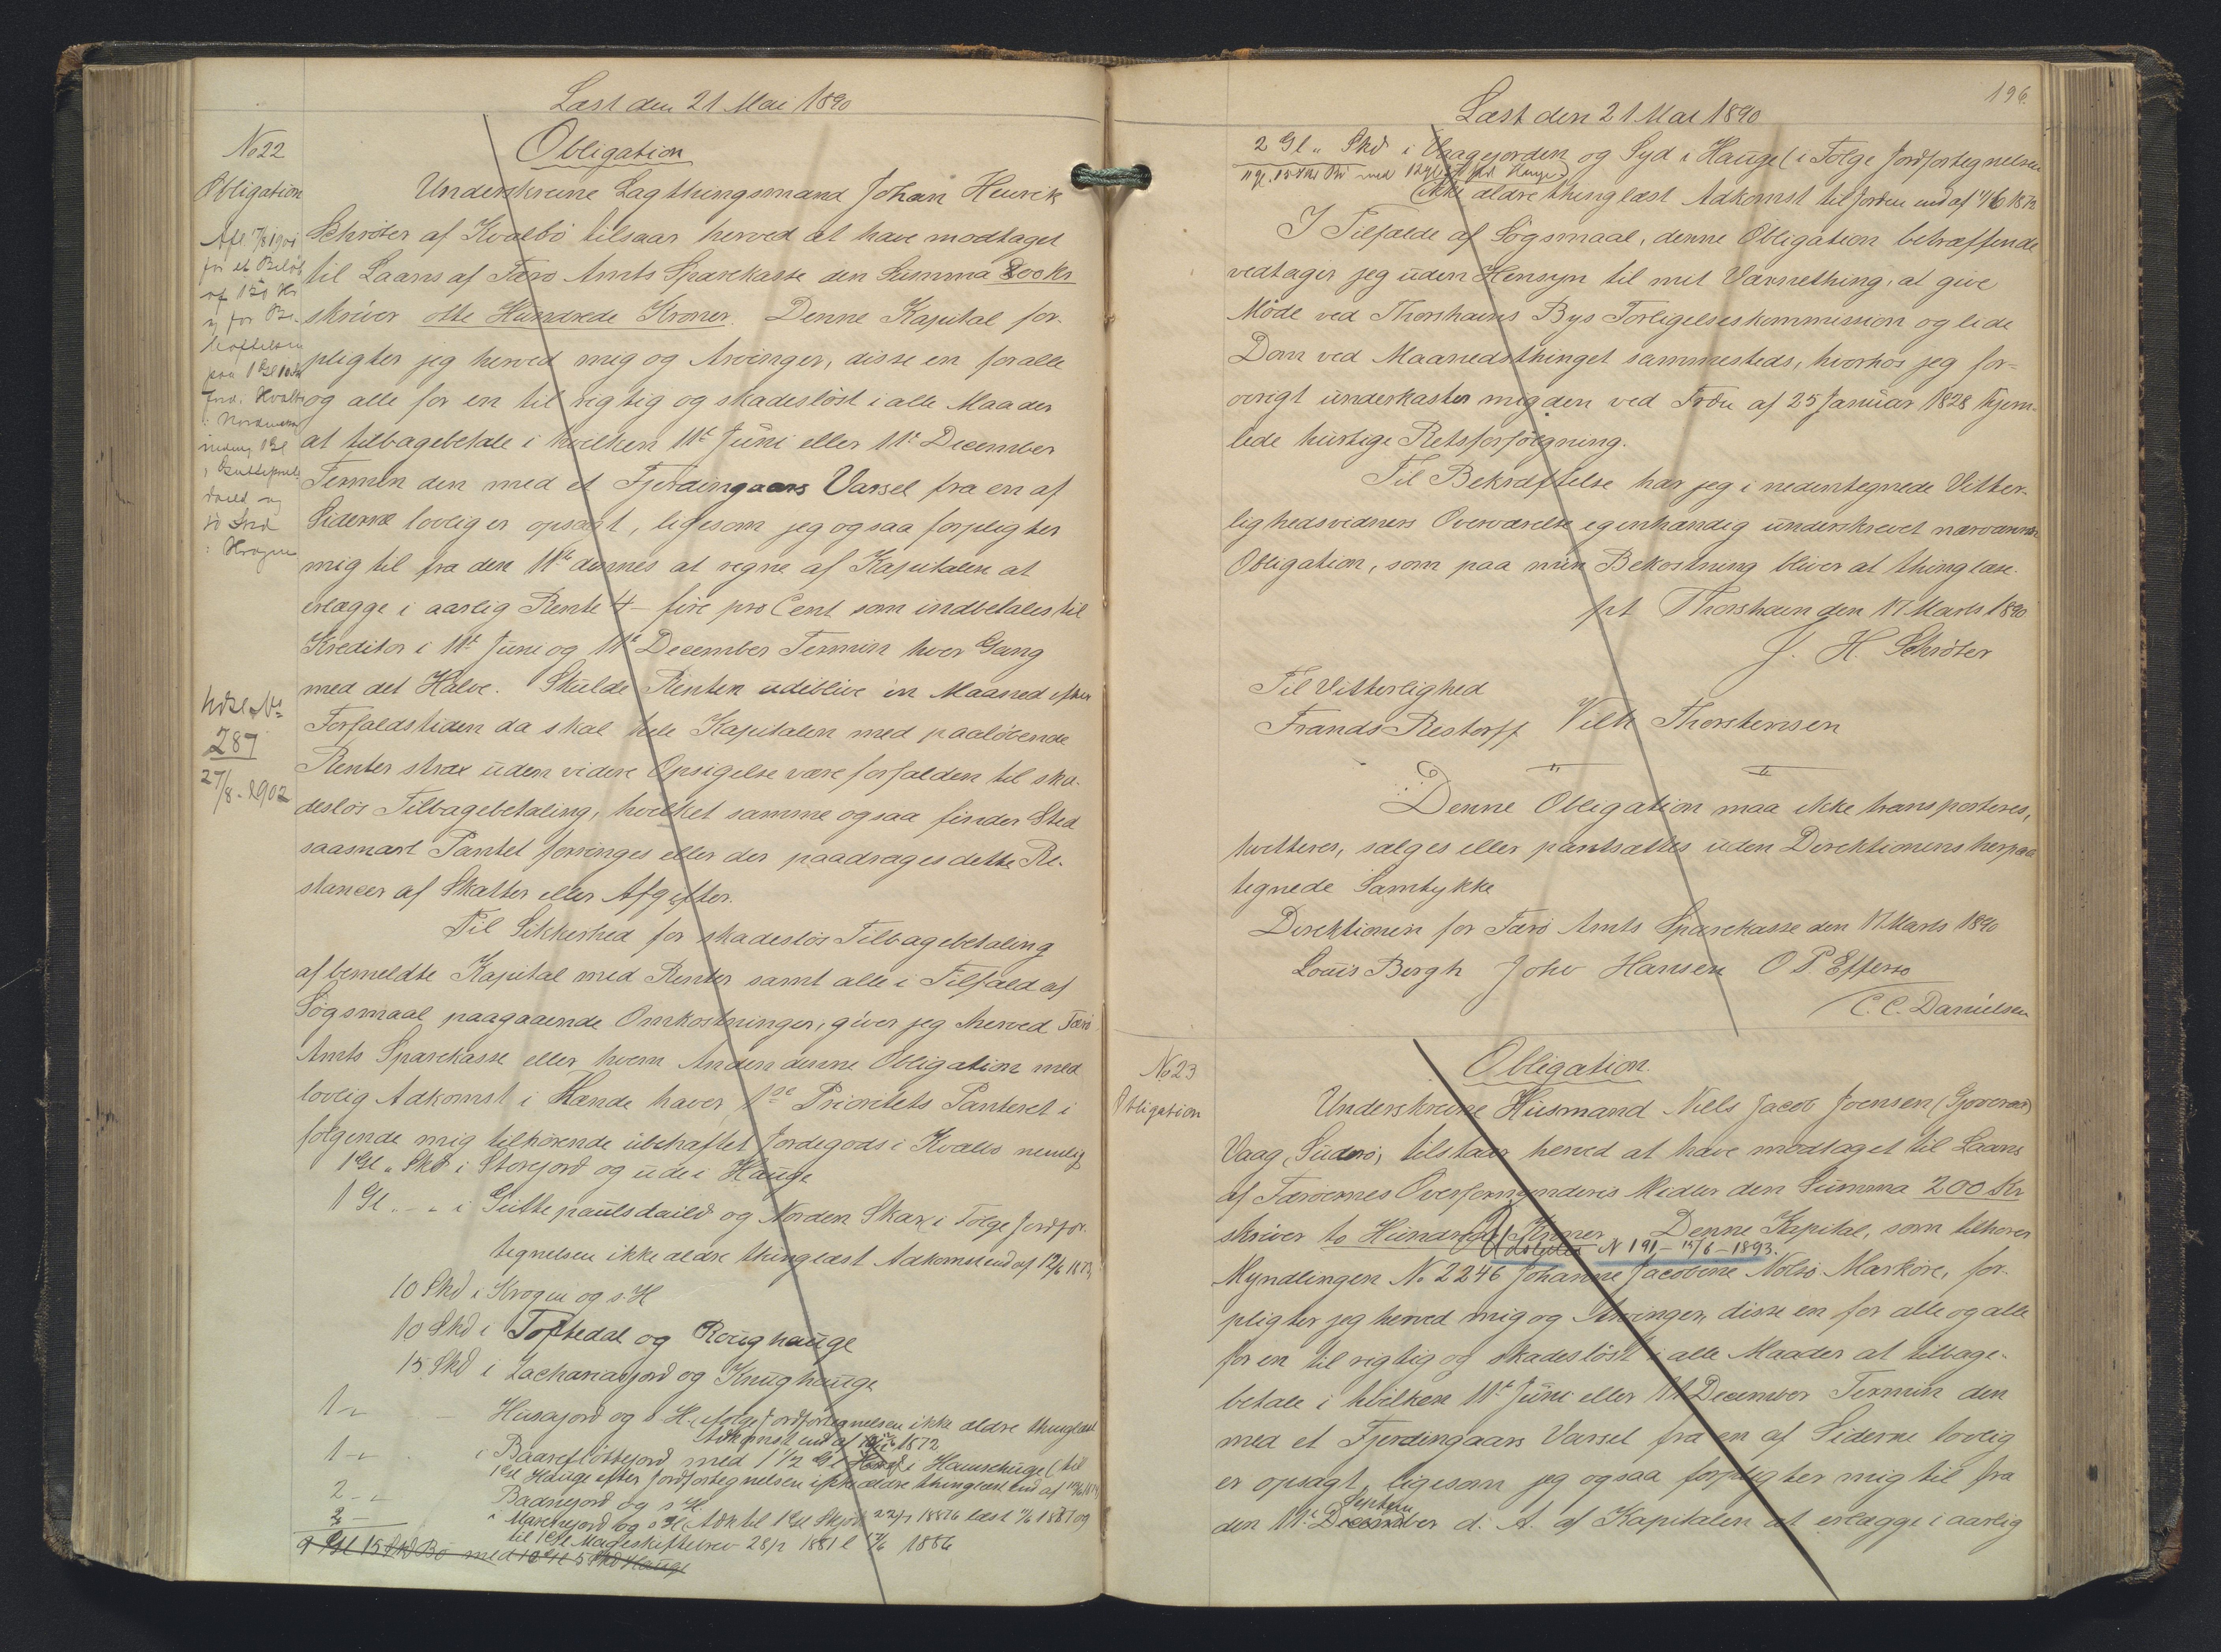 Læst den 21 Mai 1890
No 22
Obligation
Obligation
Underskrevne Lagthingsmand Johan Henrik
Schröter af Kvalbö tilstaar herved at have modtaget
til Laans af Færö Amts Sparekasse den Summa 800 Kr
skriver otte Hundrede Kroner. Denne Kapital for-
pligter jeg herved mig og Arvinger, disse en for alle
og alle for en til rigtig og skadeslöst i alle Maader
at tilbagebetale i hvilken 11te Juni eller 11te December
Termin den med et Fjerdingaars Varsel fra en af
Siderne lovlig er opsagt, ligesom jeg ogsaa forpligter
mig til fra den 11te dennes at regne af Kapitalen at
erlægge i aarlig Rente 4 – fire pro Cent som indbetales til
Kreditor i 11te Juni og 11te December Termin hver Gang
med det Halve. Skulde Renten udeblive en Maaned efter
Forfaldstiden da skal hele Kapitalen med paalöbende
Renter strax uden videre Opsigelse være forfalden til ska-
deslös Tilbagebetaling, hvilket samme ogsaa finder Sted
saasnart Pantet forringes eller der paadrages dette Re-
stancer af Skatter eller Afgifter.
Til Sikkerhed for skadeslös Tilbagebetaling
af bemeldte Kapital med Renter samt alle i Tilfæld af
Sögsmaal paagaaende Omkostninger, giver jeg herved Færö
Amts Sparekasse eller hvem Anden denne Obligation med
lovlig Adkomst i Hænde haver 1ste Prioritets Panteret i
fölgende mig tilhörende übehæftet Jordegods i Kvalbö nemlig
1 Gl „ Skd i Storejord og ude i Hauge
1 Gl „ – „ i Guttepaulsdaild og Norden Skar (i Fölge Jordfor-
tegnelsen ikke ældre thinglæst Adkomst end af 12/6 1873)
10 Skd i Krogen og s. H
10 Skd i Toftedal og Roughauge
15 Skd i Zachariasjord og Knughauge
1 – „ – Husajord og s. H. (ifölge Jordfortegnelsen ikke ældre thinglæst
Adkomst end af 1872
1 – „ i Baarefløttejord med 1 1/2 Gl i Hamrehauge (til
1 Gl Hauge efter Jordfortegnelsen ikke ældre thinglæst end af
2 – „ Baanejord og s. H.
2 – i Marknejord og s H. Adk til 1 Gl Skjöde 22/7 1886 læst 1887 og
til 1 Gl Mageskiftebrev 28/2 1881 l 1886
9 Gl 15 Skd Bö med 10 Gl 5 Skd Hauge
Afl. 7/8 1901
for et Belöb
af 120 Kr
og for Be-
hæftelsen
paa 1 Gl 10 Skd
Jord. Kvalbö
i Norden
nemlig 1 Gl
i Guttepauls
daild og
10 Skd
i Krogen
Udsl. No
287
27/8 - 1902
196.
Læst den 21 Mai 1890
2 Gl „ Skd i Vaagejorden og Syd i Hauge (i Fölge Jordfortegnelsen
11 gl. 15 Skd Bö med 12 gl Skd. Hauge)
ikke ældre thinglæst Adkomst til Jorden end af 1872
I Tilfælde af Sögsmaal, denne Obligation betræffende
vedtager jeg uden Hensyn til mit Værnething, at give
Möde ved Thorshavns Bys Forligelseskommission og lide
Dom ved Maanedsthinget sammesteds, hvorhos jeg for-
övrigt underkaster mig den ved Frdn af 25 Januar 1828 hjem-
lede hurtige Retsforfölgning.
Til Bekræftelse har jeg i nedentegnede Vitter-
lighedsvidners Overværelse egenhændig underskrevet nærværende
Obligation, som paa min Bekostning bliver at thinglæse.
pt Thorshavn den 17 Marts 1890
J. H. Schröter
Til Vitterlighed
Frands Restorff Vilh Thorsteinsen
Denne Obligation maa ikke transporteres,
kvitteres, sælges eller pantsættes uden Direktionens herpaa
tegnede Samtykke
Direktionen for Færö Amts Sparekasse den 17 Marts 1890
Louis Bergh Johs Hansen O P. Effersö
C. C. Danielsen
No 23
Obligation
Obligation.
Underskrevne Husmand Niels Jacob Joensen
Vaag, Suderö, tilstaar herved at have modtaget til Laans
af Færöernes Overformynderis Midler den Summa 200 Kr
skriver to Hundrede Kroner. Denne Kapital, som tilhörer
Udslettes N 191 – 15/6 – 1893.
Myndlingen No 2246 Johanne Jacobine Nolsö Marköre, for-
pligter jeg herved mig og Arvinger, disse en for alle og alle
for en til rigtig og skadeslöst i alle Maader at tilbage-
betale i hvilken 11te Juni eller 11te December Termin den
med et Fjerdingaars Varsel fra en af Siderne lovlig
er opsagt, ligesom jeg ogsaa forpligter mig til fra
Septem
den 11te December d. A. af Kapitalen at erlægge i aarlig